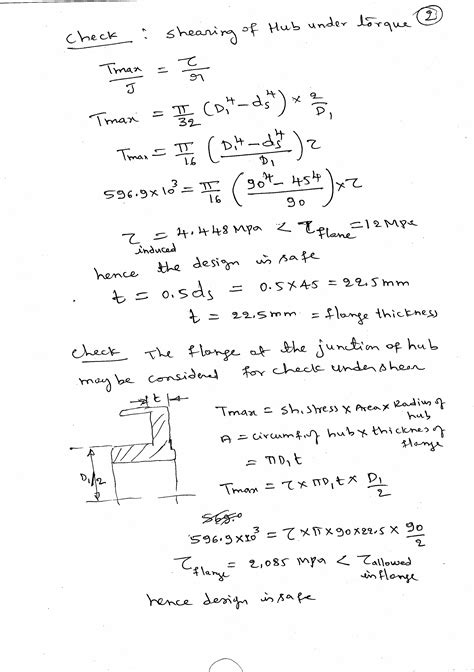 2
Check : shearing of Hub under torque
Tmax/J = τ/r
Tmax = π/32 (D₁⁴ - ds⁴) × 2/D₁
Tmax = π/16 ((D₁⁴ - ds⁴)/D₁) τ
596.9×10³ = π/16 ((90⁴ - 45⁴)/90) × τ
τ induced = 4.448 MPa < τ flange = 12 MPa
hence the design is safe
t = 0.5ds = 0.5×45 = 22.5mm
t = 22.5mm = flange thickness
Check The flange at the junction of hub
may be considered for check under shear
t
D₁/2
Tmax = sh. stress × Area × Radius of hub
A = circumf. of hub × thicknes of flange
= πD₁t
Tmax = τ × πD₁t × D₁/2
596.9×10³ = τ×π×90×22.5 × 90/2
τ flange = 2.085 MPa < τ allowed in flange
hence design is safe